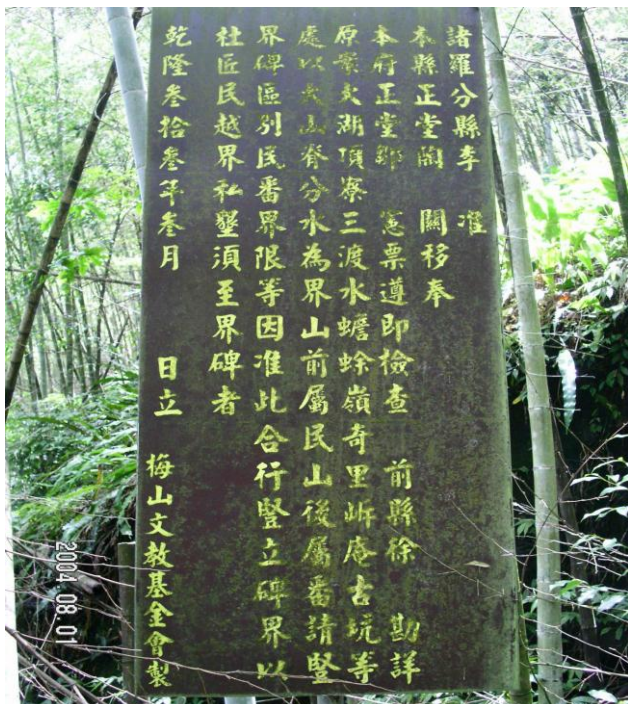 諸羅分縣李 准
本縣正堂陶 關移奉
本府正堂鄒 憲票遵即檢查 前縣徐 勘詳
原案大湖頂寮三渡水蟾蜍嶺奇里岸庵古坑等
處以大山脊分水為界山前屬民山後屬番請豎
界碑區別民番界限等因准此合行豎立碑界以
社匠民越界私墾須至界碑者
乾隆叁拾叁年叁月 日立 梅山文教基金會製
2004.08.01